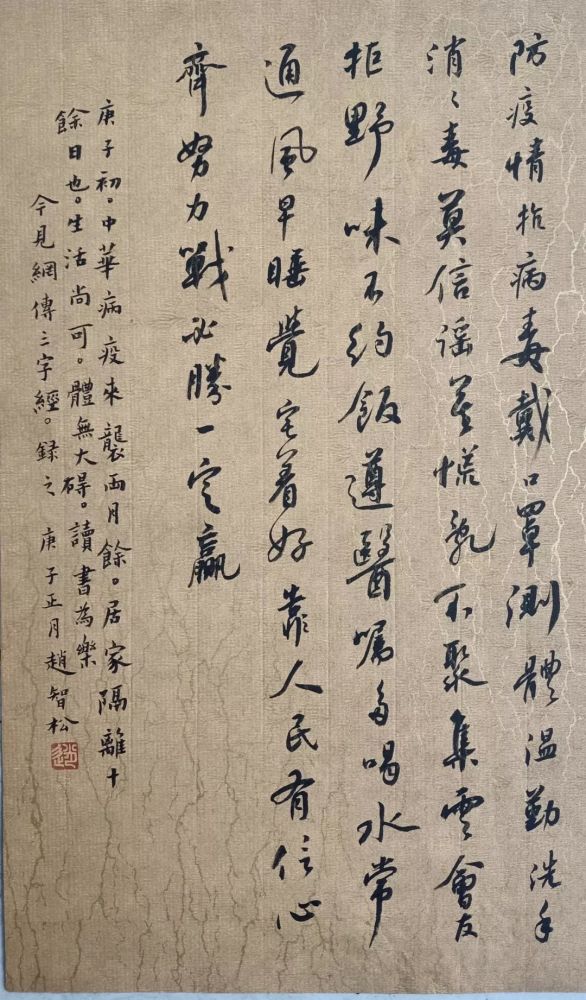 防疫情抗病毒戴口罩測體温勤洗手
消消毒莫信谣莫慌乱不聚集雲會友
拒野味不約飯遵醫嘱多喝水常
通風早睡覺宅着好靠人民有信心
齊努力戰必勝一定贏
庚子初。中華病疫來襲兩月餘。居家隔離十
餘日也。生活尚可。體無大碍。讀書為樂
今見網傳三字經。録之 庚子正月趙智松
趙